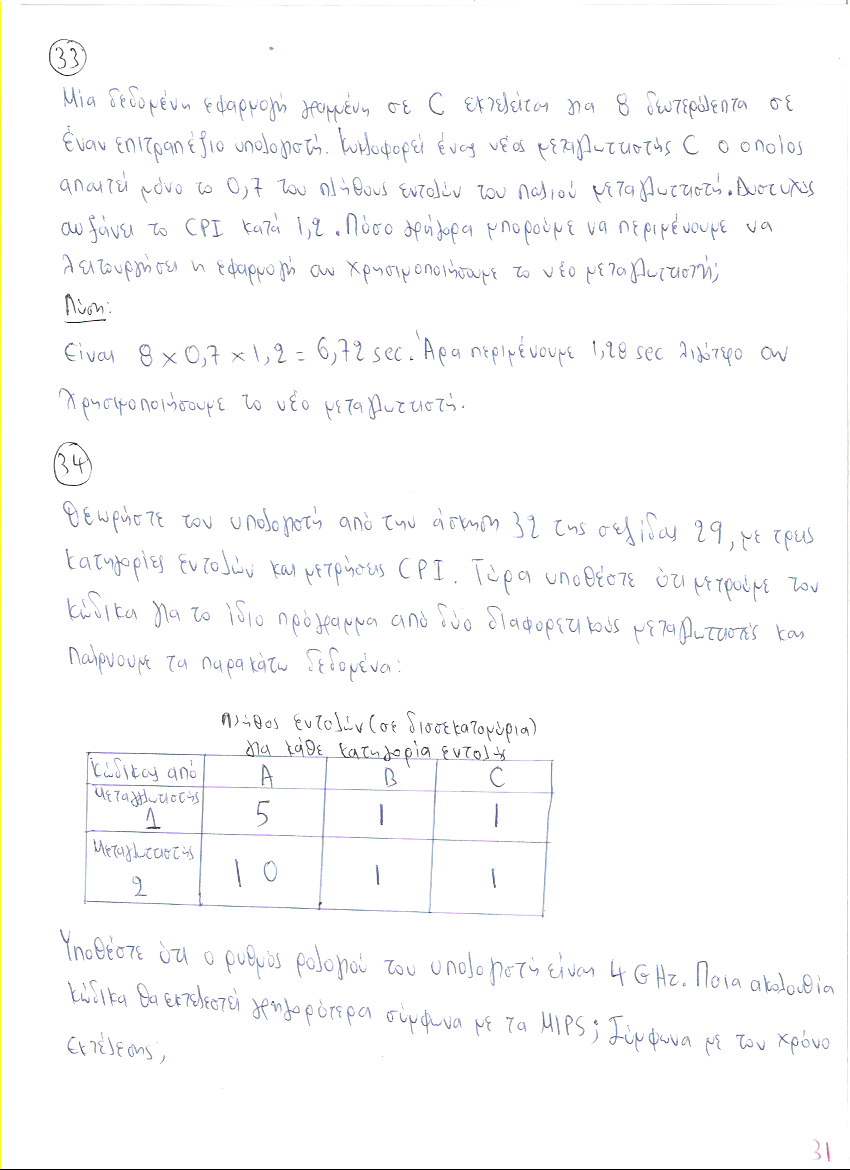 33
Μία δεδομένη εφαρμογή γραμμένη σε C εκτελείται για 8 δευτερόλεπτα σε
έναν επιτραπέζιο υπολογιστή. Κυκλοφορεί ένας νέος μεταγλωττιστής C ο οποίος
απαιτεί μόνο το 0,7 του πλήθους εντολών του παλιού μεταγλωττιστή. Δυστυχώς
αυξάνει το CPI κατά 1,2. Πόσο γρήγορα μπορούμε να περιμένουμε να
λειτουργήσει η εφαρμογή αν χρησιμοποιήσουμε το νέο μεταγλωττιστή;
Λύση:
Είναι 8 x 0,7 x 1,2 = 6,72 sec. Άρα περιμένουμε 1,28 sec λιγότερο αν
χρησιμοποιήσουμε το νέο μεταγλωττιστή.
34
Θεωρήστε τον υπολογιστή από την άσκηση 32 της σελίδας 29, με τρεις
κατηγορίες εντολών και μετρήσεις CPI. Τώρα υποθέστε ότι μετρούμε τον
κώδικα για το ίδιο πρόγραμμα από δύο διαφορετικούς μεταγλωττιστές και
παίρνουμε τα παρακάτω δεδομένα:
Πλήθος εντολών (σε δισσεκατομύρια)
για κάθε κατηγορία εντολής
Κώδικας από A B C
Μεταγλωττιστής 1 5 1 1
Μεταγλωττιστής 2 10 1 1
Υποθέστε ότι ο ρυθμός ρολογιού του υπολογιστή είναι 4 GHz. Ποια ακολουθία
κώδικα θα εκτελεστεί γρηγορότερα σύμφωνα με τα MIPS; Σύμφωνα με τον χρόνο
εκτέλεσης;
31